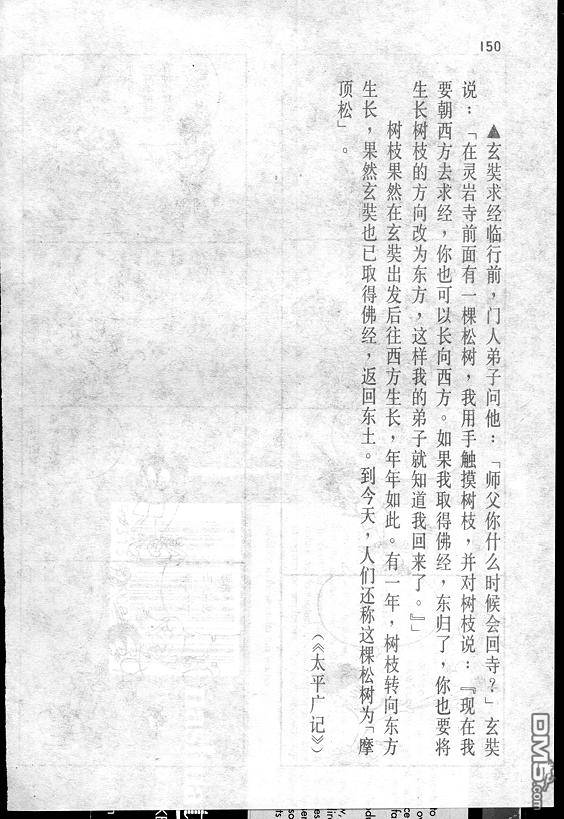 150
▲玄奘求经临行前，门人弟子问他：「师父你什么时候会回寺？」玄奘
说：「在灵岩寺前面有一棵松树，我用手触摸树枝，并对树枝说：『现在我
要朝西方去求经，你也可以长向西方。如果我取得佛经，东归了，你也要将
生长树枝的方向改为东方，这样我的弟子就知道我回来了。』」
树枝果然在玄奘出发后往西方生长，年年如此。有一年，树枝转向东方
生长，果然玄奘也已取得佛经，返回东土。到今天，人们还称这棵松树为「摩
顶松」。
（《太平广记》）
DM5.com